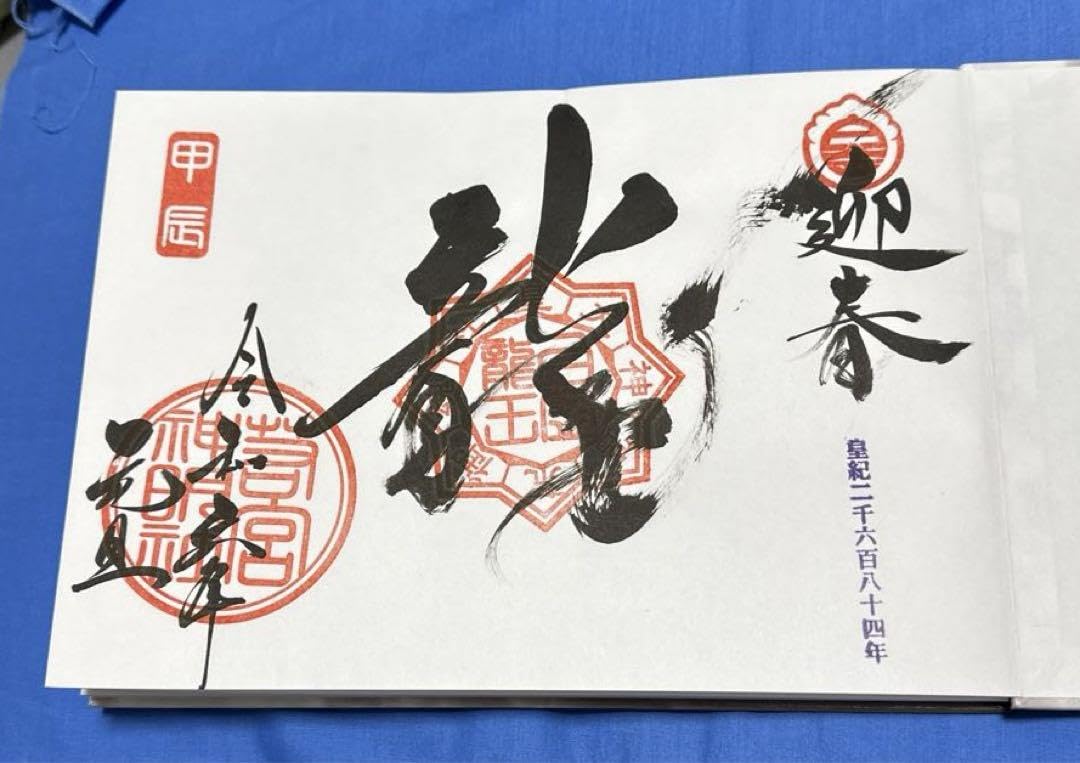 迎春
皇紀二千六百八十四年
龍
甲辰
令和六年
元旦
若宮
神明社